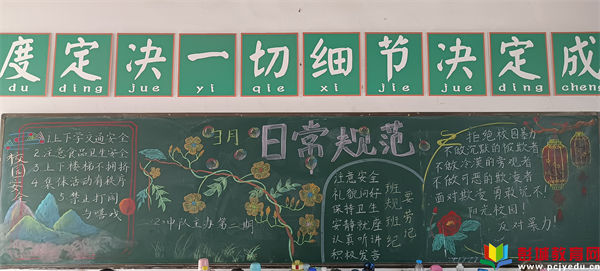 度定决一切细节决定成
du ding jue yi qie xi jie jue ding cheng
校园安全
1.上下学交通安全
2.注意食品卫生安全
3.上下楼梯不拥挤
4.集体活动有秩序
5.禁止打闹
与嬉戏
3月
日常规范
2中队主办第二期
注意安全
礼貌问好
保持卫生
安静就座
认真听讲
积极发言
班规班纪
要劳记
拒绝校园暴力
不做沉默的被欺者
不做冷漠的旁观者
不做可恶的欺凌者
面对欺凌 勇敢说不!
阳光校园!
反对暴力!
彭措教育网
www.pcjyedu.cn